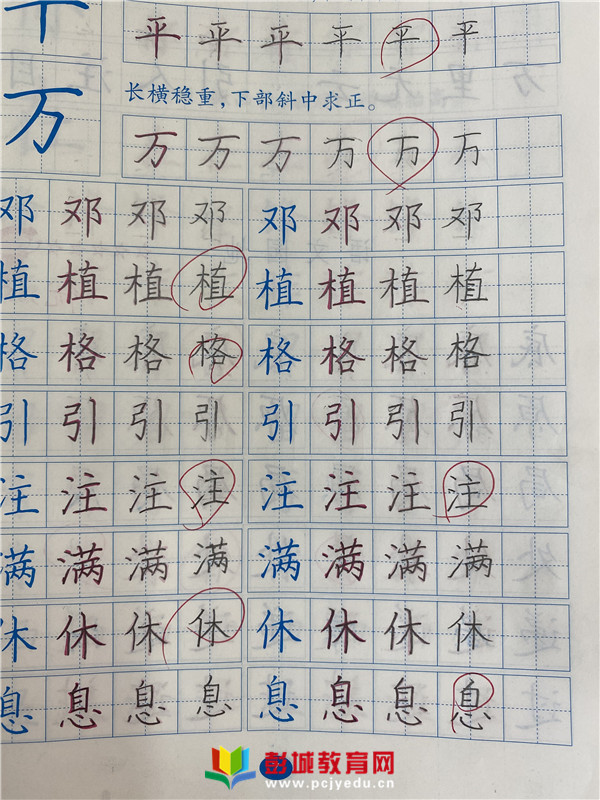 平 平 平 平 平 平 平
长横稳重，下部斜中求正。
万 万 万 万 万 万 万
邓 邓 邓 邓 邓 邓 邓 邓
植 植 植 植 植 植 植 植
格 格 格 格 格 格 格 格
引 引 引 引 引 引 引 引
注 注 注 注 注 注 注 注
满 满 满 满 满 满 满 满
休 休 休 休 休 休 休 休
息 息 息 息 息 息 息 息
彭城教育网
www.pcjyedu.cn